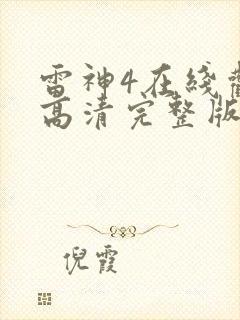 雷神4在线
高清完整版
倪霞